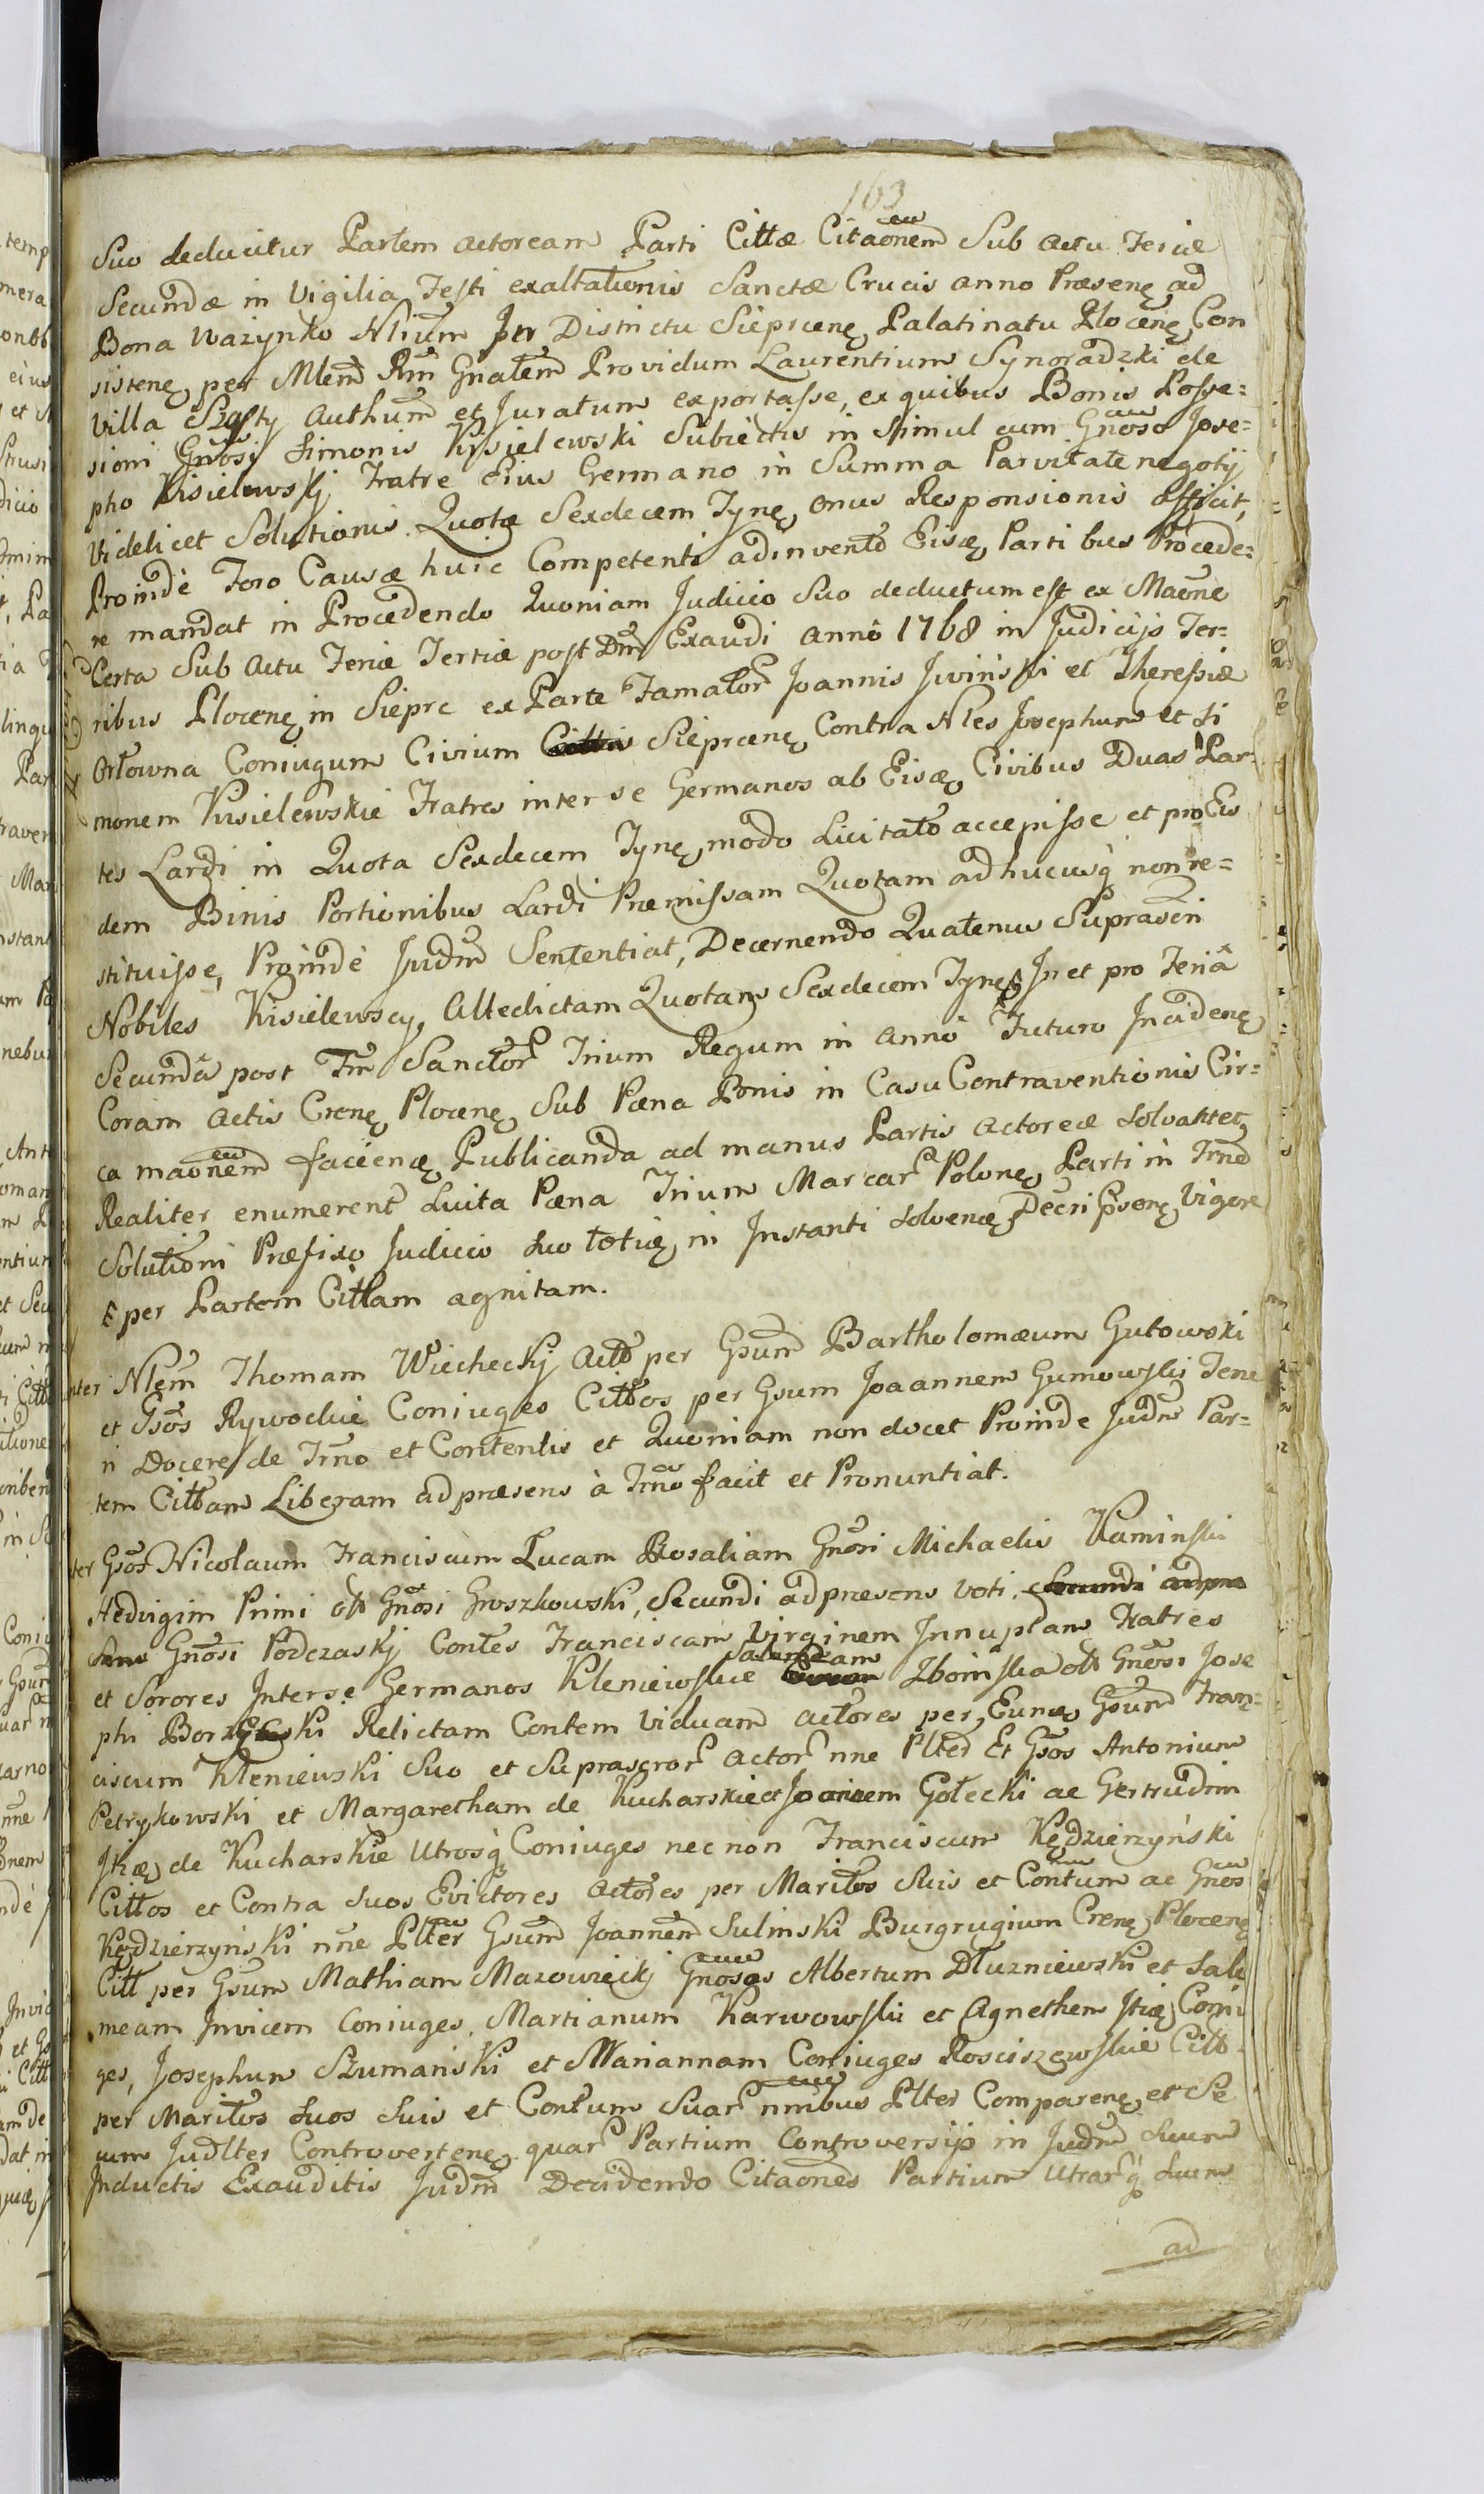 163
Suo deducitur Partem actoream Parti Cittæ Citaōnem Sub actu Feriæ
Secundæ in Vigilia Festi exaltationis Sanctæ Crucis anno Præsenę ad
Bona Wazynko Nlium In Districtu Sieprcenę Palatinatu Plocenę Con
sistenę per Mlem Rm Gnalem Providum Laurentium Synoradzki de
Villa Szasty Authum et Juratum exportasse, ex quibus Bonis Posse=
sioni Gnosi Simonis Kisielewski Subiectis in Simul cum Gnoso Jose=
pho Kisielewskj Fratre Eius Germano in Summa Parvitate negotij
Videlicet Solutionis Quotæ Sexdecem Tynę onus Responsionis afficit,
Proinde Foro Causæ huic Competenti adinvento Eisdę Partibus Procede=
re mandat in Procedendo Quoniam Judicio Suo deductum est ex Maōne
Certa Sub Actu Feriæ Tertiæ post Dm Exaudi anno 1768 in Judicijs Ter=
ribus Plocenę in Sieprc ex Parte Famator Joannis Jwinski et Theresiæ
Orłowna Coniugum Civium Sieprcenę Contra Nles Josephum et Si
monem Kisielewskie Fratres inter se Germanos ab Eisdę Civibus Duas Par=
tes Lardi in Quota Sexdecem Tynę modo Licitato accepisse et pro Eis
dem Binis Portionibus Lardi Præmissam Quotam adhucusq non re=
stituisse, Proinde Judm Sententiat, Decernendo Quatenus Suprascri
Nobiles Kisielewscy, Attedictam Quotam Sexdecem Tynę In et pro Feriâ
Secundâ post Fm Sanctor Trium Regum in anno Futuro Incidenę
Coram Actis Crenę Plocenę Sub Pæna Ponis in Casu Contraventionis Cir=
ca maōnem facienę Publicanda ad manus Partis Actoreæ Solvant et
Realiter enumerent Luita Pæna Trium Marcar Polonę Parti in Trno
Solutioni Præfixo Judicio Suo totię in Instanti Solvenę Decri Psenę Vigore
per Partem Cittam agnitam.
nter Nlem Thomam Wiecheckj Actto per Gsum Bartholomæum Gutowski
et Gsos Rywockie Coniuges Cittos per Gsum Joaannem Gumowski Tene
ri Docere de Trno et Contentis et Quoniam non docet Proinde Judm Par=
tem Cittam Liberam ad præsens à Trno facit et Pronuntiat.
ter Gsos Nicolaum Franciscum Lucam Rosaliam Gnosi Michaelis Kaminski
Hedvigim Primi olt Gnosi Groszkowski, Secundi ad præsens voti
Gnosi Podczaskj Contes Franciscam Virginem Innuptam Fratres
et Sorores Inter se Germanos Kleniewskie Zboinska olt Gnosi Jose
phi Relictam Contem Viduam actores per Eundę Gsum Fran=
ciscum Kleniewski Suo et Suprascror Actor nne Plted Et Gsos Antonium
Petrykowski et Margaretham de Kucharskie et Joannem Gołecki ac Gertrudim
Itię de Kucharskie Utrosq Coniuges nec non Franciscum Kędzierzyński
Cittos et Contra Suos Evictores Actores per Maritos Suis et Contum ac Gnos
Kędzierzyński nne Plter Gsum Joannem Sulinski Burgrugium Crenę Plocenę
Citt per Gsum Mathiam Mazowieckj Gnosos Albertum Dłuzniewski et Salo
meam Invicem Coniuges, Martianum Karwowski et Agnethem Itię Coniu
ges, Josephum Szumański et Mariannam Coniuges Rosciszewskie Citt
per Maritos Suos Suis et Contum Suar nnibus Plter Comparenę et Se
cum Judlter Controvertenę quar Partium Controversijs in Judm Suum
Inductis Exauditis Judm Decidendo Citaōnes Partium Utrarq Suum
ad